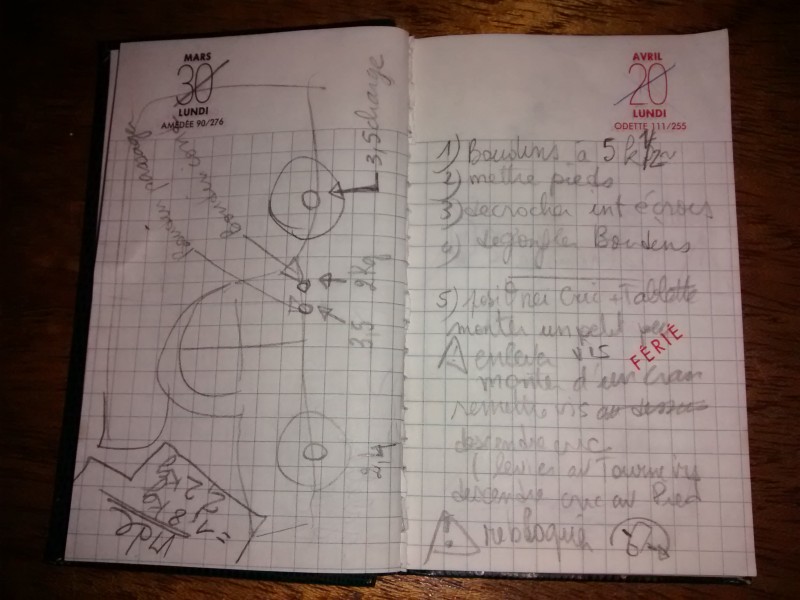 MARS
30
LUNDI
AMÉDÉE 90/276
3,5 charge
2 kg
3,5
2,4
Inde
1,8 kg
= 2,2 kg
AVRIL
20
LUNDI
ODETTE 111/255
1) Boudins à 5 k
2) mettre pieds
3) décrocher int écrous
4) degonfler Boudins
5) Cric + Tablette
monter un petit peu
FÉRIÉ
enleva vis
monter d'un cran
remettre vis au
descendre cric
( levier av Tournevis
descendre cric av Pied
rebloquer